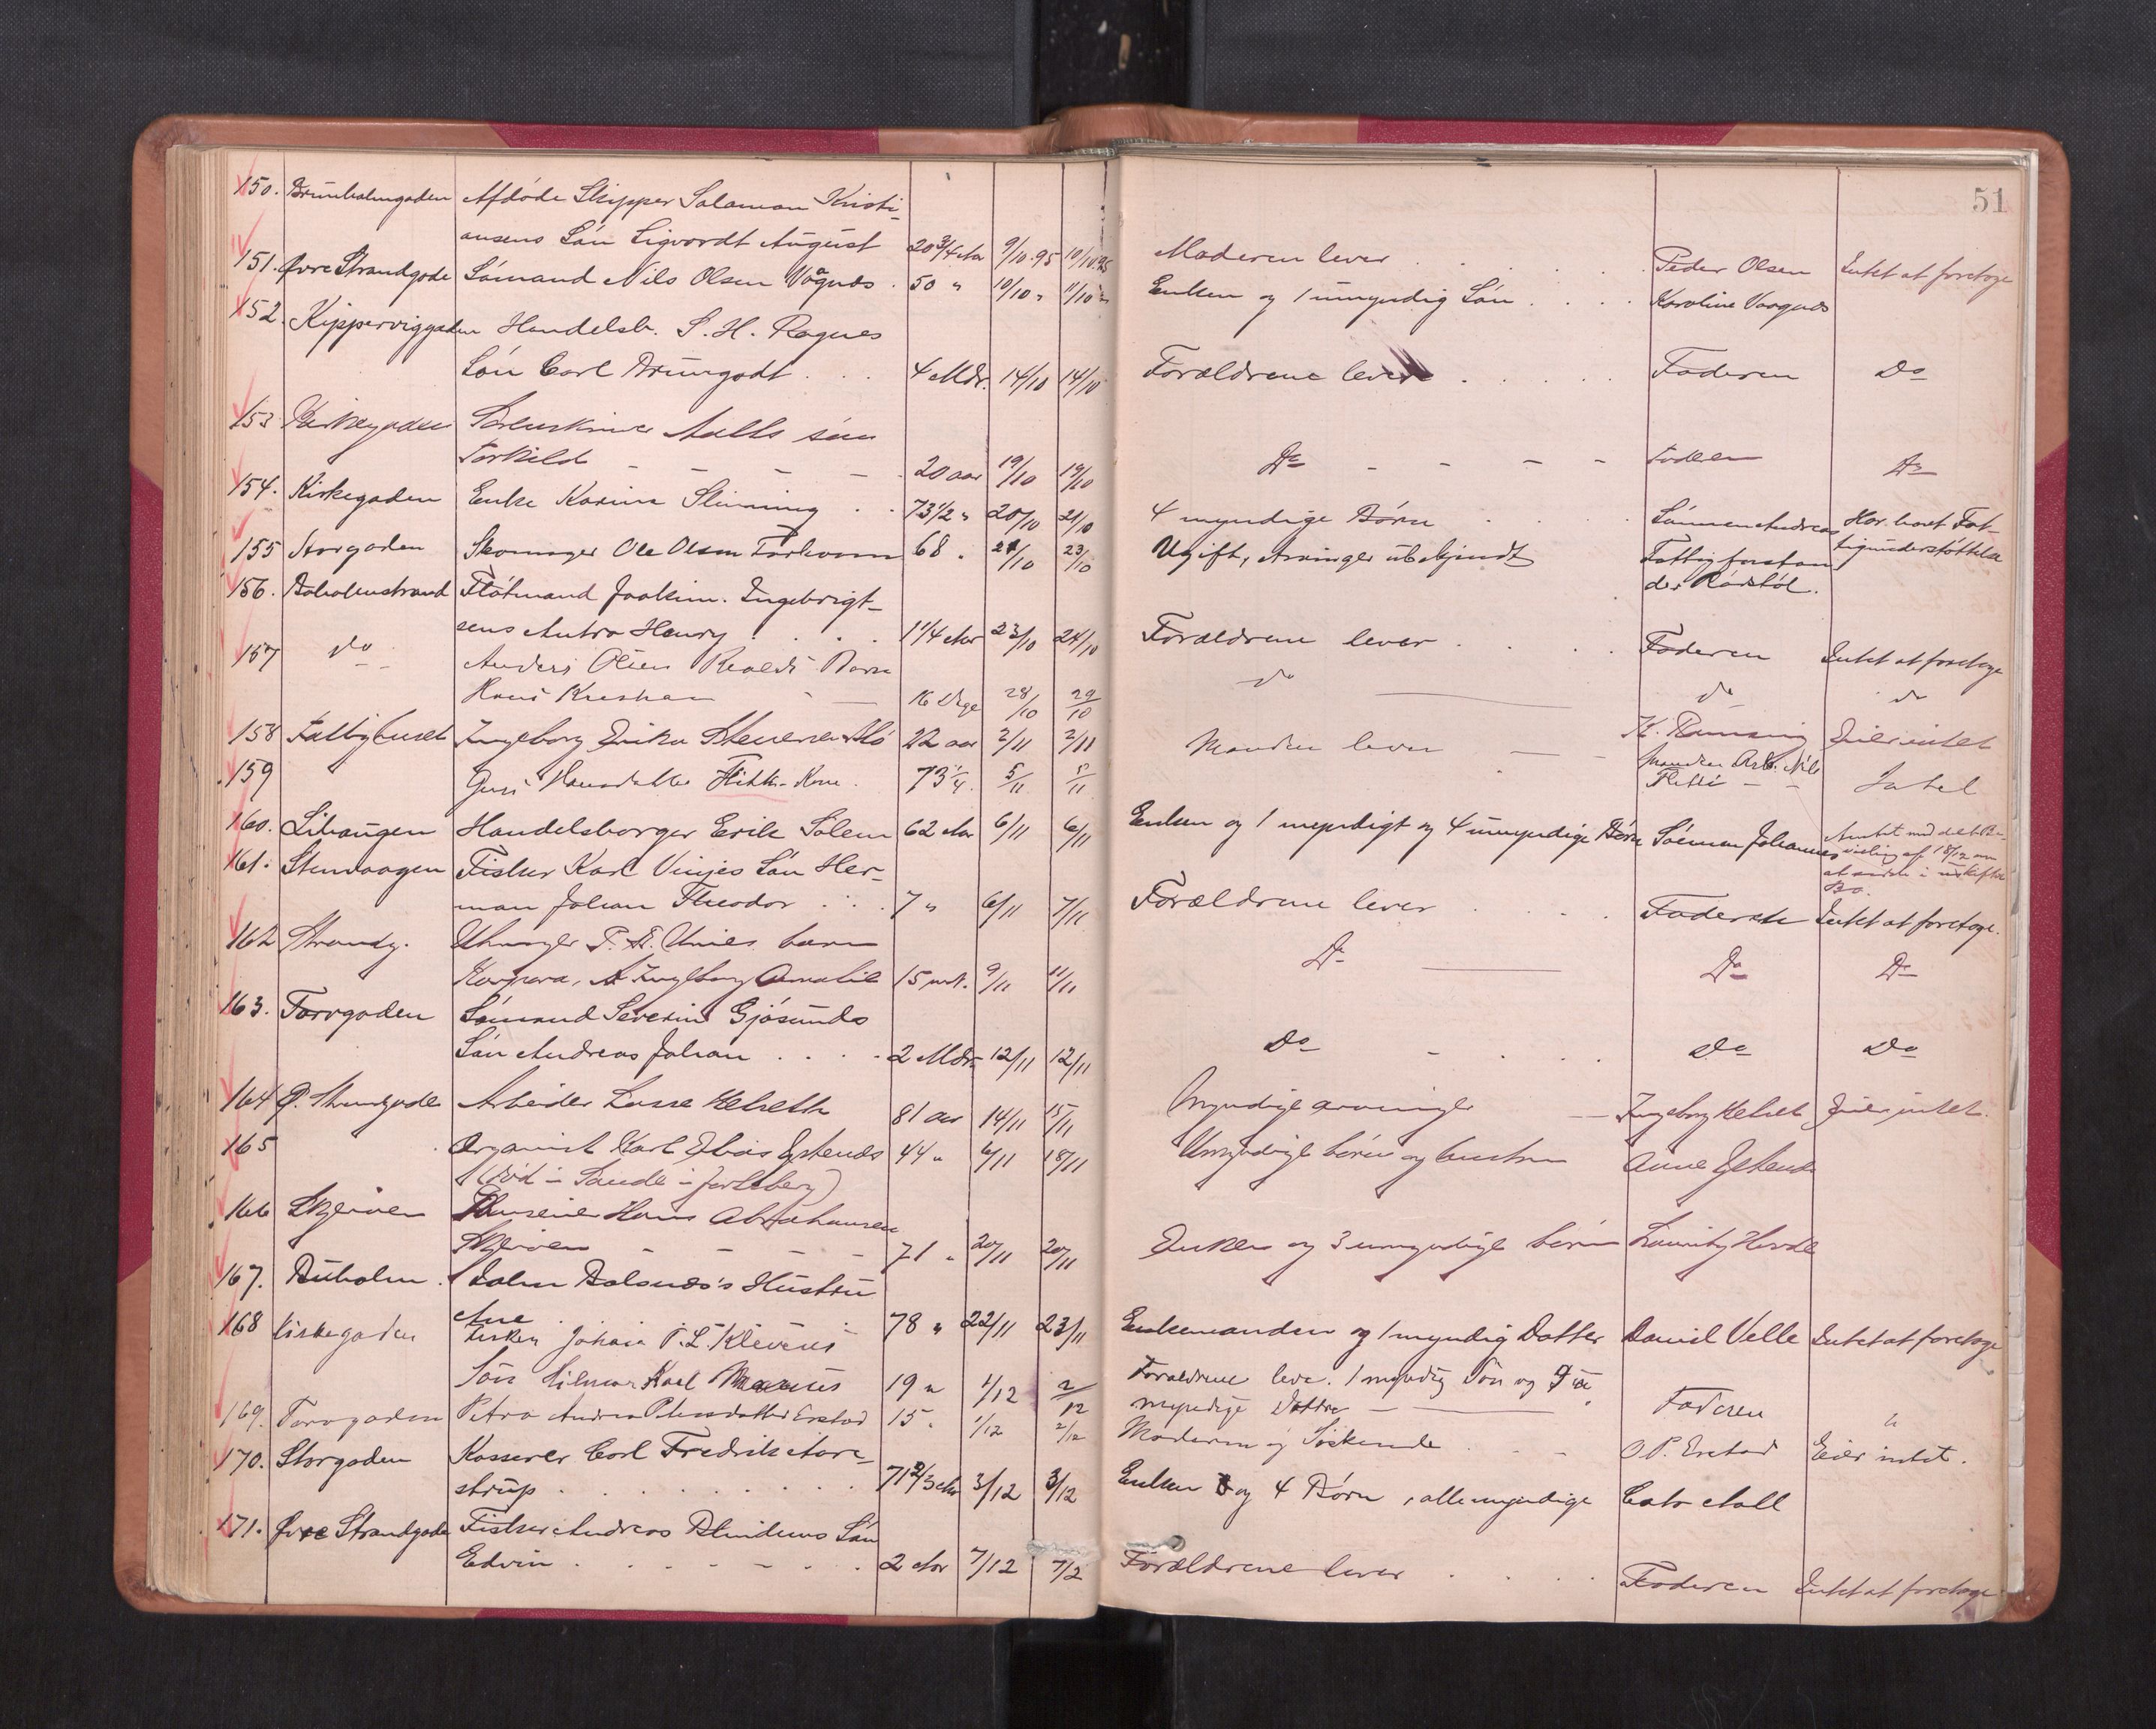 51
150. Brunholmgaden Afdøde Skipper Salamon Kristi-
ansens Søn Sigvardt August 20 3/4 Aar 9/10.95 10/10 95 Moderen lever . . . Peder Olsen Intet at foretage
151. Øvre Strandgade Sømand Nils Olsen Vågnæs . 50 " 10/10 " 11/10 " Enken og 1 umyndig Søn . . . Karoline Vaagnæs
152. Kipperviggaden Handelsb. S. H. Ragnes
Søn Carl Brungodt . . . 4 Mdr. 14/10 14/10 Forældrene lever . . . . Faderen Do
153 Kirkegaden Aalls søn
Torkild - - - - 20 aar 19/10 19/10 Do - - - - Faderen Do
154. Kirkegaden Enke Karine . . 73 1/2 " 20/10 21/10 4 myndige Børn . . . Sønnen Andreas Har havt Fat-
tigunderstøttelse
155 Storgaden Skomager Ole Olsen 68 " 21/10 23/10 Ugift, Arvinger ubekjendt Fattigforstan-
der Rødstøl.
156. Buholmstrand Fløtmand Joakim Ingebrigt-
sens Antro Henry . . . . 1 1/4 Aar 23/10 24/10 Forældrene lever . . . . Faderen Intet at foretage
157 do Anders Olsen Barn
Hans Kristian - - 16 Dge 28/10 29/10 do do do
158 Fattighuset Ingeborg Erika 22 aar 2/11 2/11 Manden lever - - K. Ramsing Eier intet
159 Guri Hansdatter Kone . 73 1/4 5/11 5/11 Manden Arb. Nils
160. Lihaugen Handelsborger Erik Solem 62 Aar 6/11 6/11 Enken og 1 myndigt og 4 umyndige Børn Sønnen Johannes
161. Stenvaagen Fisker Karl Vinjes Søn Her-
man Johan Theodor . . . 7 " 6/11 7/11 Forældrene lever . . . . Faderen Intet at foretage.
162 Strandg. Uhrmager P. barn
Ingeborg Amalie 15 mdr. 9/11 11/11 Do Do Do
163. Torvgaden Sømand Severin Gjøsunds
Søn Andreas Johan . . . . 2 Mdr. 12/11 12/11 Do - . . . Do Do
164 Ø. Strandgade Arbeider Lasse Helseth 81 aar 14/11 15/11 Myndige arvinger - Ingeborg Helseth Eier intet.
165 Organist Karl 44 " 6/11 18/11 Umyndige børn og hustru Anne
(død i Sande i Jarlsberg)
166 Skjerven Hans Abrahamsen
Skjerven - - - - 71 " 20/11 20/11 Enken og 3 umyndige børn
167. Buholm . John Balsnæs's Hustru
Ane . . . . 78 " 22/11 23/11 Enkemanden og 1 myndig Datter Daniel Velle Intet at foretage
168 Kirkegaden Johan P. L. Klevens
Søn Hilmar Karl Marius 19 " 1/12 2/12 Forældrene lever. 1 myndig Søn og
myndige Døttre - Faderen "
169. Torvgaden Petra Andrea Petersdatter Erstad 15 " 1/12 2/12 Moderen og Søskende - - O. P. Erstad Eier intet.
170. Storgaden Kasserer Carl Fredrik Aare-
strup . . . . . . . . 71 2/3 Aar 3/12 3/12 Enken og 4 Børn, alle myndige Cato Aall
171. Øvre Strandgade Fisker Andreas Blindems Søn
Edvin . . . . - - . . 2 Aar 7/12 7/12 Forældrene lever . . . . Faderen Intet at foretage